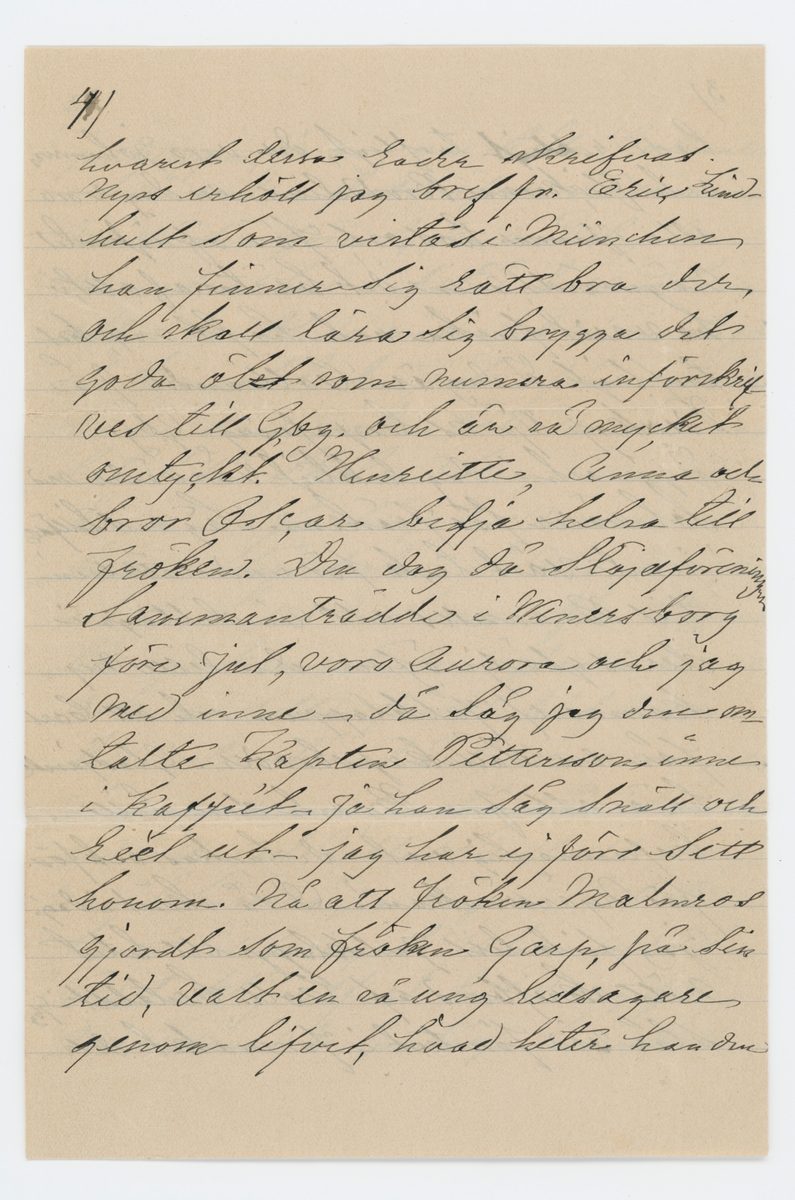 4)
hvarest dessa rader skrifvas.
Nyss erhöll jag bref fr. Eric Lind-
hult som vistas i München
han finner sig rätt bra der,
och skall lära sig brygga det
goda ölet som numera införskrif
ves till Gbg. och är så mycket
omtyckt. Henriette, Anna och
bror Oscar bedja helsa till
fröken. Den dag då Slöjdföreningen
Sammanträdde i Wenersborg
före jul, voro Aurora och jag
med inne – då såg jag den om-
talte Kapten Pettersson inne
i kafféet – ja han såg snäll och
reel ut – jag har ej förr sett
honom. Nå att fröken Malmros
gjordt som fröken Garp, på sin
tid, valt en så ung ledsagare
genom lifvet, hvad heter han den